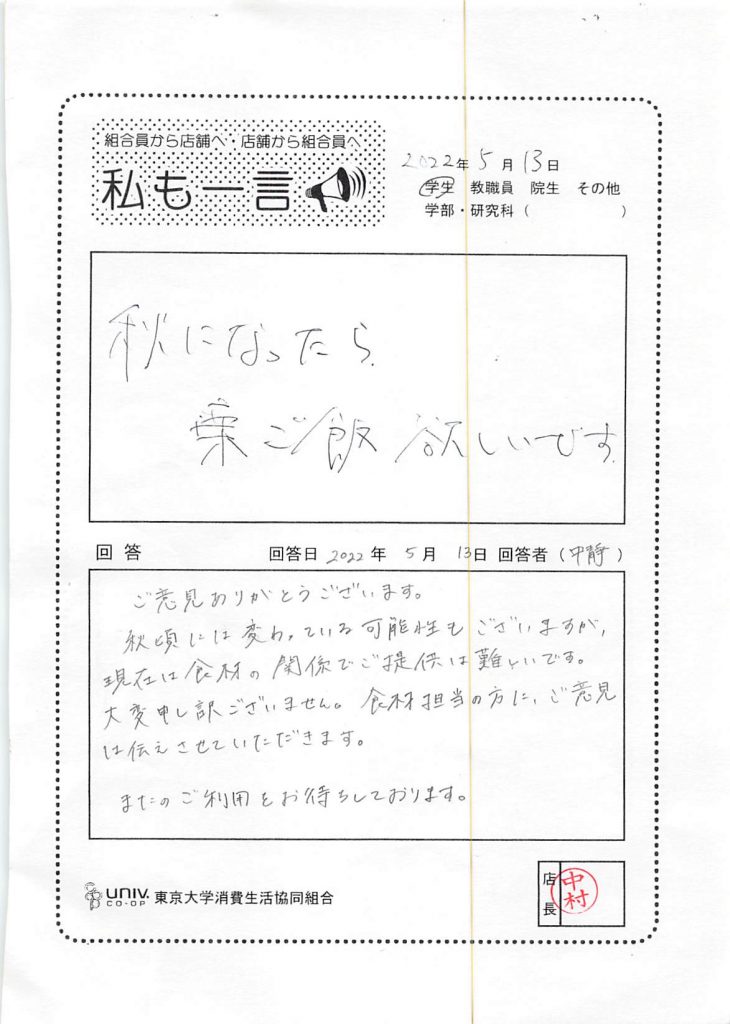 組合員から店舗へ・店舗から組合員へ
私も一言
2022年 5月 13日
学生 教職員 院生 その他
学部・研究科（　　　　　）
秋になったら
栗ご飯 欲しいです
回答 回答日 2022年 5月 13日 回答者（中静）
ご意見ありがとうございます。
秋頃には変わっている可能性もございますが、
現在は食材の関係でご提供は難しいです。
大変申し訳ございません。食材担当の方に、ご意見
は伝えさせていただきます。
またのご利用をお待ちしております。
UNIV. CO-OP 東京大学消費生活協同組合
店長 中村